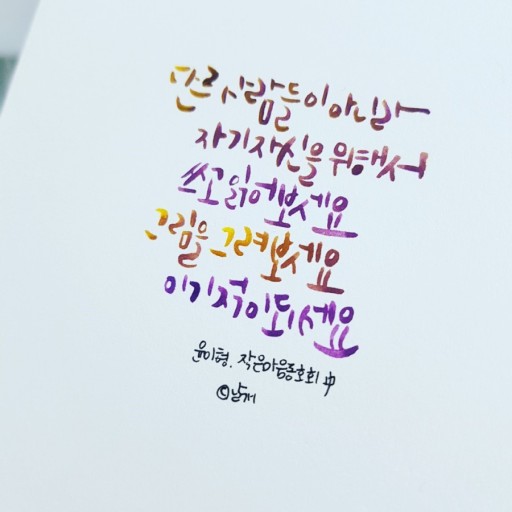 다른 사람들이 아니라
자기 자신을 위해서
쓰고 읽어보세요
그림을 그려보세요
이기적이 되세요
윤이형. 작은마음동호회 中
©날개